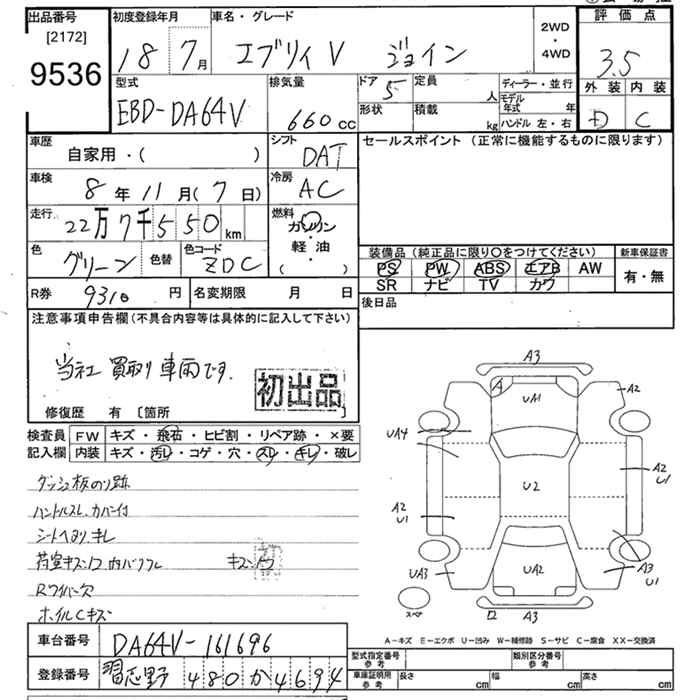 出品番号
[2172]
9536
初度登録年月
18 7月
車名・グレード
エブリィV ジョイン
2WD
・
4WD
評価点
3.5
外装 内装
D C
型式
EBD-DA64V
排気量
660 cc
ドア 5
定員 人
形状
積載 kg
ディーラー・並行
モデル年式 年
ハンドル 左・右
車歴
自家用・( )
シフト
DAT
セールスポイント (正常に機能するものに限ります)
車検
8年11月(7日)
冷房
AC
走行
22万7千550km
燃料
ガソリン
・
軽油
・
( )
色
グリーン
色替
色コード
ZDC
装備品 (純正品に限り○をつけてください)
PS PW ABS エアB AW
SR ナビ TV カワ
新車保証書
有・無
R券 9310円
名変期限 月 日
後日品
注意事項申告欄(不具合内容等は具体的に記入して下さい)
当社買取り車両です.
初出品
修復歴 有 [箇所 ]
検査員記入欄
FW キズ・飛石・ヒビ割・リペア跡・×要
内装 キズ・汚レ・コゲ・穴・スレ・キレ・破レ
ダッシュ板のり跡
ハンドルスレ、カバー付
シートヘタリ、キレ
Rワイパー欠
ホイルCキズ
A3
A
UA1
A2
UA4
A2
U1
U2
A2
U1
UA3
UA2
A3
U1
スペア
ロ
A3
A－キズ E－エクボ U－凹み W－補修跡 S－サビ C－腐食 XX－交換済
車台番号 DA64V-161696
登録番号 習志野 480 か 4694
型式指定番号
参考
類別区分番号
参考
車庫証明用
参考
長さ cm
幅 cm
高さ cm